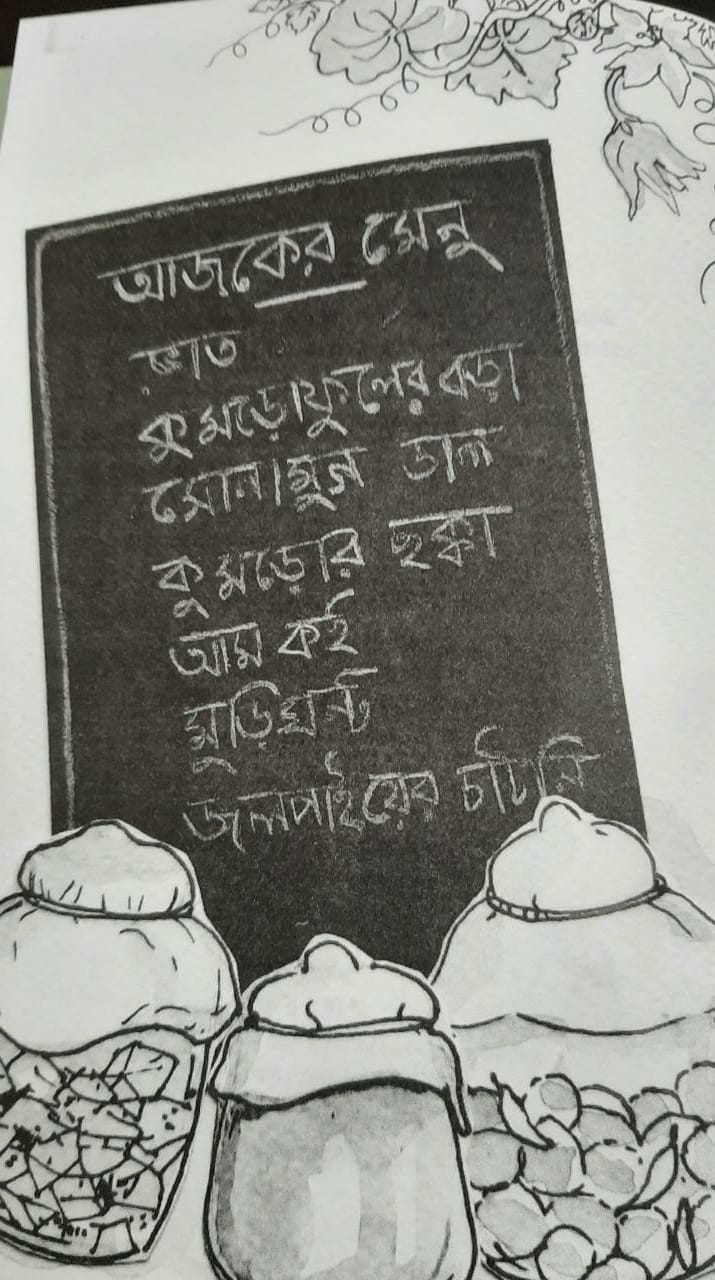 আজকের মেনু
ভাত
কুমড়োফুলের বড়া
সোনামুগ ডাল
কুমড়োর ছক্কা
আম কই
মুড়িঘন্ট
জলপাইয়ের চাটনি